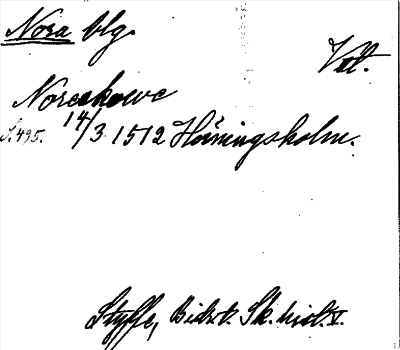 Nora blg.
Vtl.
Noreskowc
S. 495. 14/3 1512 Hörningsholm.
Styffe, Bidr. t. Sk. hist. V.